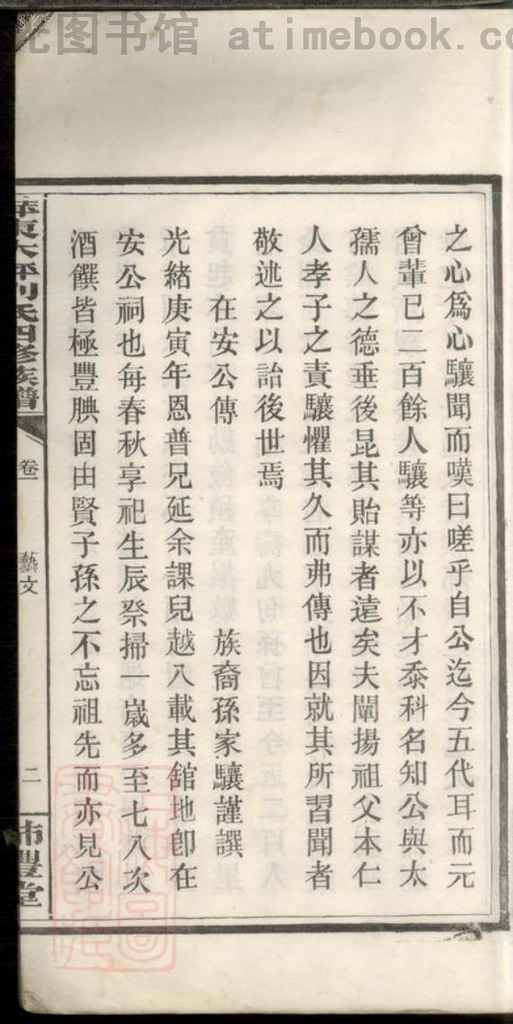 光图书馆 atimebook.co
之心為心驤聞而嘆曰嗟乎自公迄今五代耳而元
曾輩已二百餘人驤等亦以不才忝科名知公與太
孺人之德垂後昆其貽謀者遠矣夫闡揚祖父本仁
人孝子之責驤懼其久而弗傳也因就其所習聞者
敬述之以詒後世焉
在安公傳 族裔孫家驤謹譔
光緒庚寅年恩普兄延余課兒越八載其舘地卽在
安公祠也每春秋享祀生辰祭掃一嵗多至七八次
酒饌皆極豐腆固由賢子孫之不忘祖先而亦見公
東大坪刘氏四修族譜
卷一
藝文
二
沛豐堂